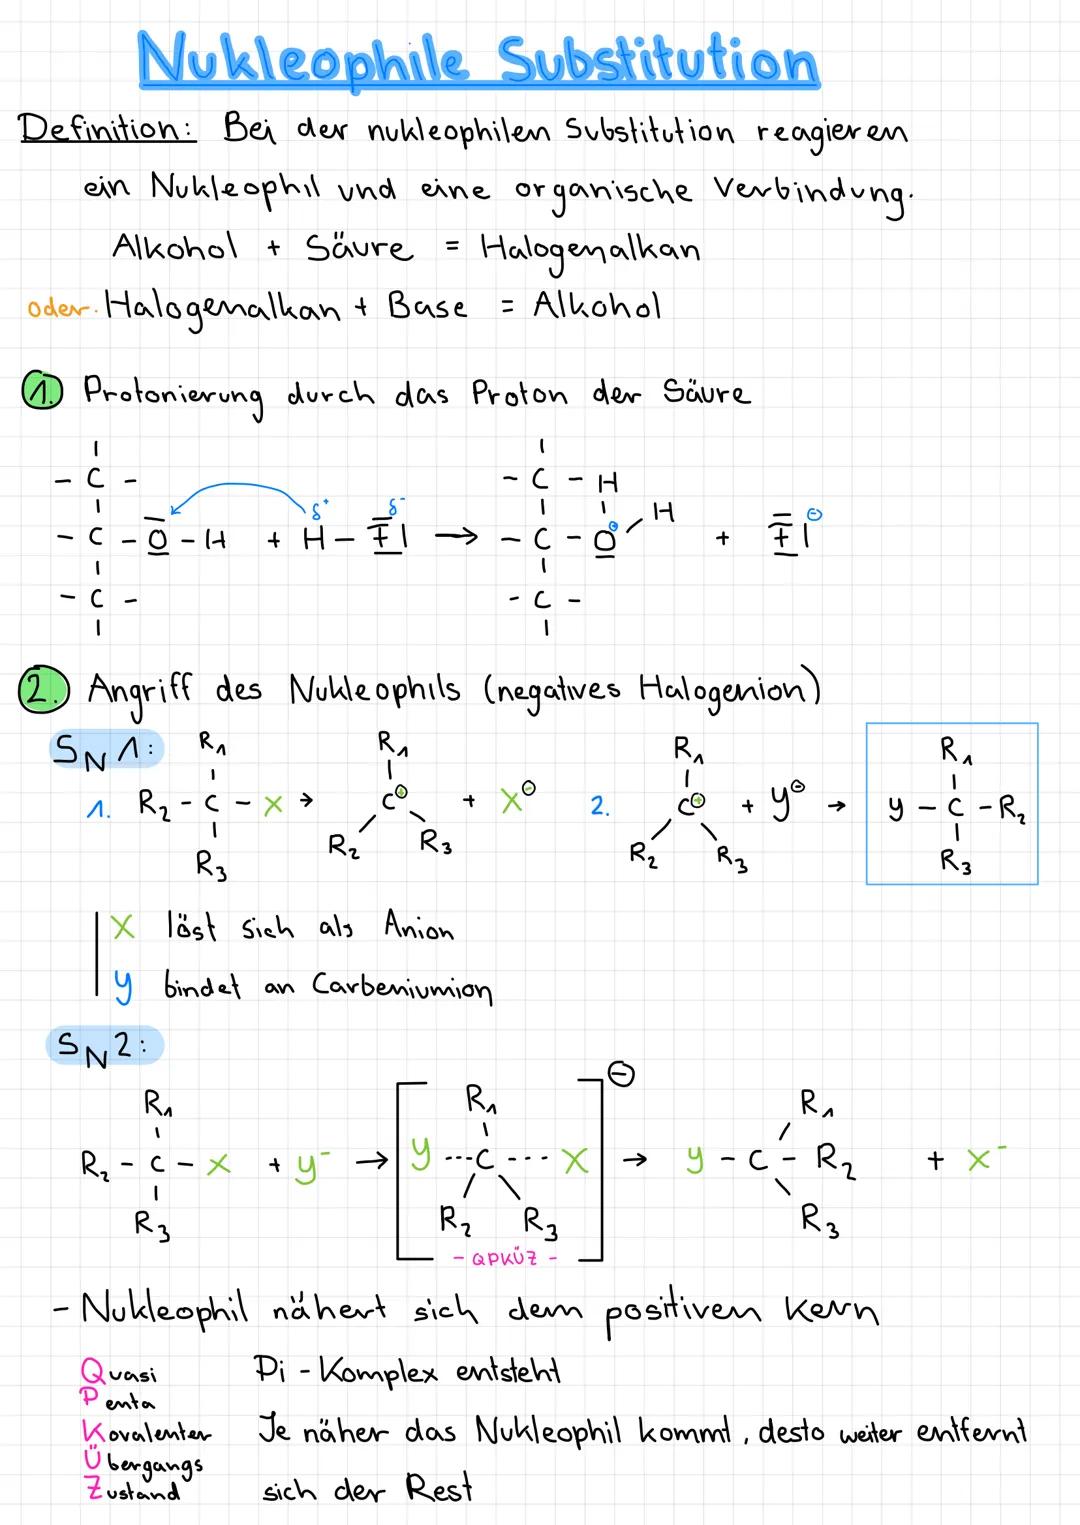 Nukleophile Substitution
Definition: Bei der nukleophilen Substitution reagieren
ein Nukleophil und eine organische Verbindung.
Alkohol + Säure = Halogenalkan
oder. Halogenalkan + Base = Alkohol
1. Protonierung durch das Proton der Säure
- C -
- C - O - H + H δ+ - F δ- | → - C - O ⊕ - H + F | ⊖
- C -
- C - H
H
- C -
2. Angriff des Nukleophils (negatives Halogenion)
SN1:
R1 R1 R1 R1
1. R2 - C - X → C⊕ + X⊖ 2. C⊕ + y⊖ → y - C - R2
R3 R2 R3 R2 R3 R3
X löst sich als Anion
y bindet an Carbeniumion
SN2:
R1 R1 ⊖ R1
R2 - C - X + y- → [y ---C --- X] → y - C - R2 + X-
R3 R2 R3 R3
- QPKÜZ -
- Nukleophil nähert sich dem positiven Kern
Quasi Pi - Komplex entsteht
Penta
Kovalenter Je näher das Nukleophil kommt, desto weiter entfernt
Übergangs
Zustand sich der Rest